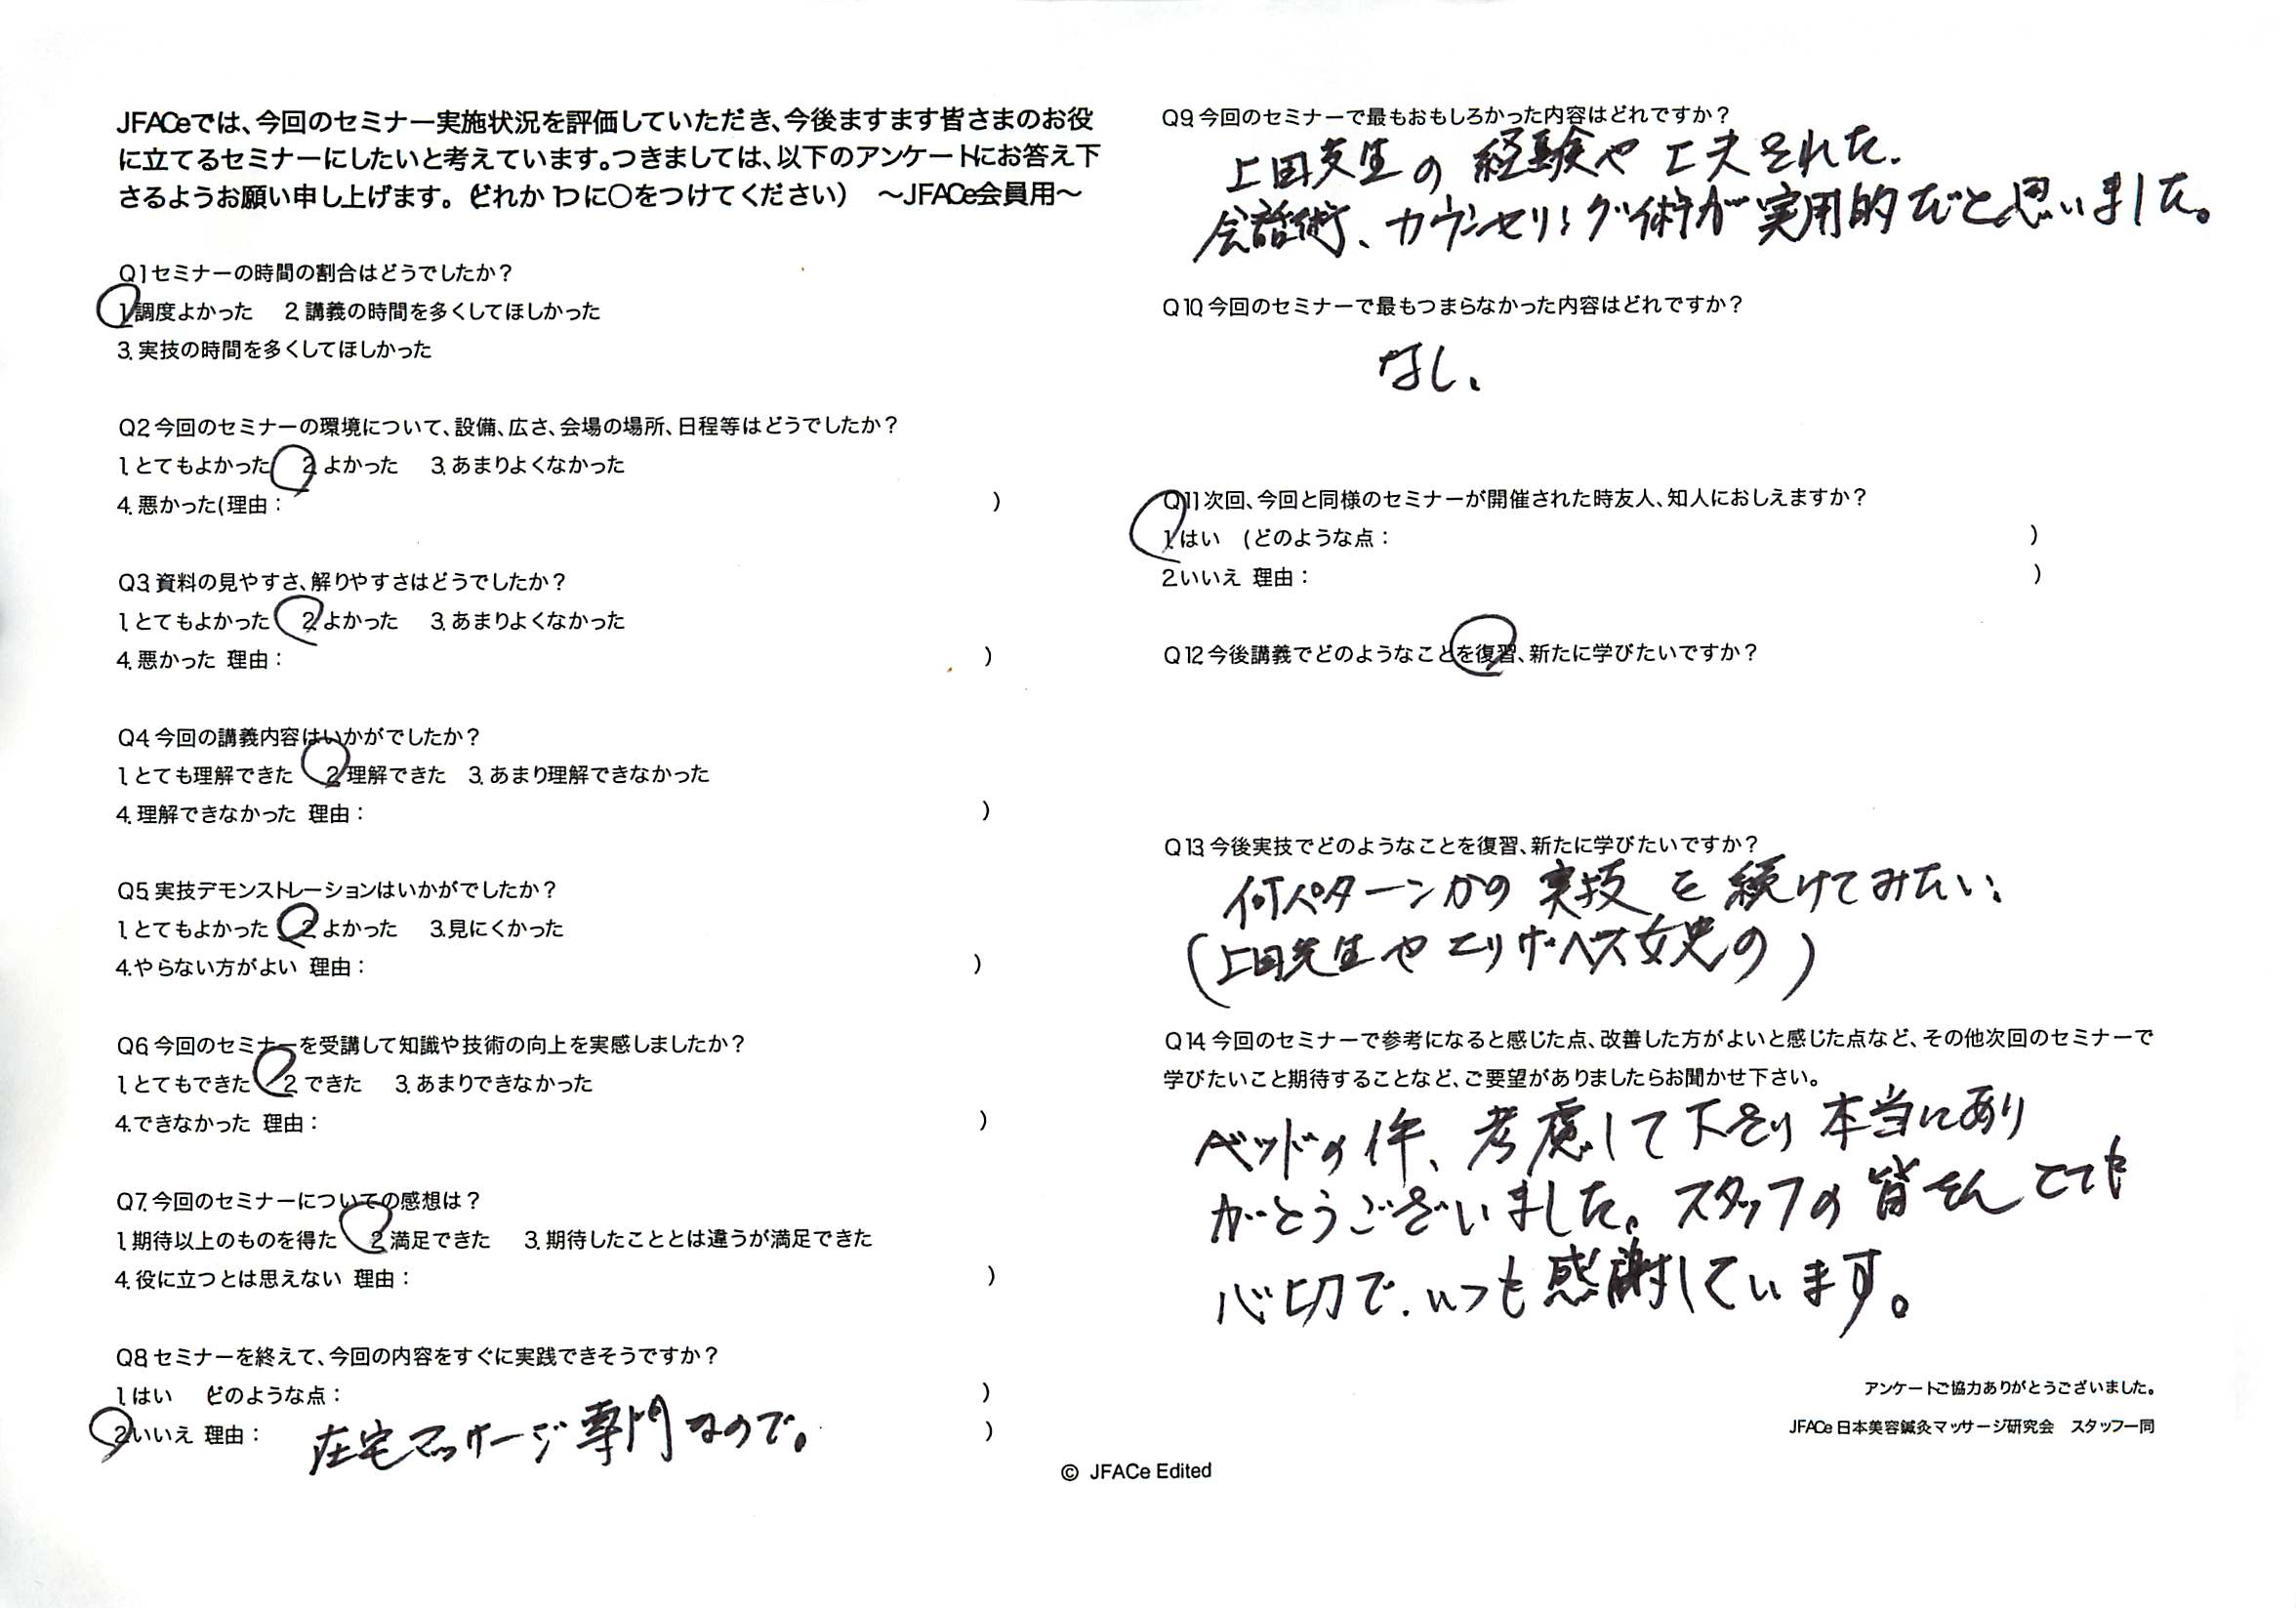 JFACeでは、今回のセミナー実施状況を評価していただき、今後ますます皆さまのお役
に立てるセミナーにしたいと考えています。つきましては、以下のアンケートにお答え下
さるようお願い申し上げます。(どれか1つに〇をつけてください) ～JFACe会員用～
Q1.セミナーの時間の割合はどうでしたか？
1.調度よかった 2.講義の時間を多くしてほしかった
3.実技の時間を多くしてほしかった
Q2.今回のセミナーの環境について、設備、広さ、会場の場所、日程等はどうでしたか？
1.とてもよかった 2.よかった 3.あまりよくなかった
4.悪かった(理由： )
Q3.資料の見やすさ、解りやすさはどうでしたか？
1.とてもよかった 2.よかった 3.あまりよくなかった
4.悪かった 理由： )
Q4.今回の講義内容はいかがでしたか？
1.とても理解できた 2.理解できた 3.あまり理解できなかった
4.理解できなかった 理由： )
Q5.実技デモンストレーションはいかがでしたか？
1.とてもよかった 2.よかった 3.見にくかった
4.やらない方がよい 理由： )
Q6.今回のセミナーを受講して知識や技術の向上を実感しましたか？
1.とてもできた 2.できた 3.あまりできなかった
4.できなかった 理由： )
Q7.今回のセミナーについての感想は？
1.期待以上のものを得た 2.満足できた 3.期待したこととは違うが満足できた
4.役に立つとは思えない 理由： )
Q8.セミナーを終えて、今回の内容をすぐに実践できそうですか？
1.はい どのような点： )
2.いいえ 理由： 在宅マッサージ専門なので。 )
Q9.今回のセミナーで最もおもしろかった内容はどれですか？
上田先生の経験や工夫された.
会話術、カウンセリング術が実用的だと思いました。
Q10.今回のセミナーで最もつまらなかった内容はどれですか？
なし、
Q11.次回、今回と同様のセミナーが開催された時友人、知人におしえますか？
1.はい (どのような点： )
2.いいえ 理由： )
Q12.今後講義でどのようなことを復習、新たに学びたいですか？
Q13.今後実技でどのようなことを復習、新たに学びたいですか？
何パターンかの実技を続けてみたい、
(上田先生やエリザベス女史の)
Q14.今回のセミナーで参考になると感じた点、改善した方がよいと感じた点など、その他次回のセミナーで
学びたいこと期待することなど、ご要望がありましたらお聞かせ下さい。
ベッドの件、考慮して下さり本当にあり
がとうございました。スタッフの皆さんとても
心切で、いつも感謝しています。
アンケートご協力ありがとうございました。
JFACe 日本美容鍼灸マッサージ研究会 スタッフ一同
© JFACe Edited